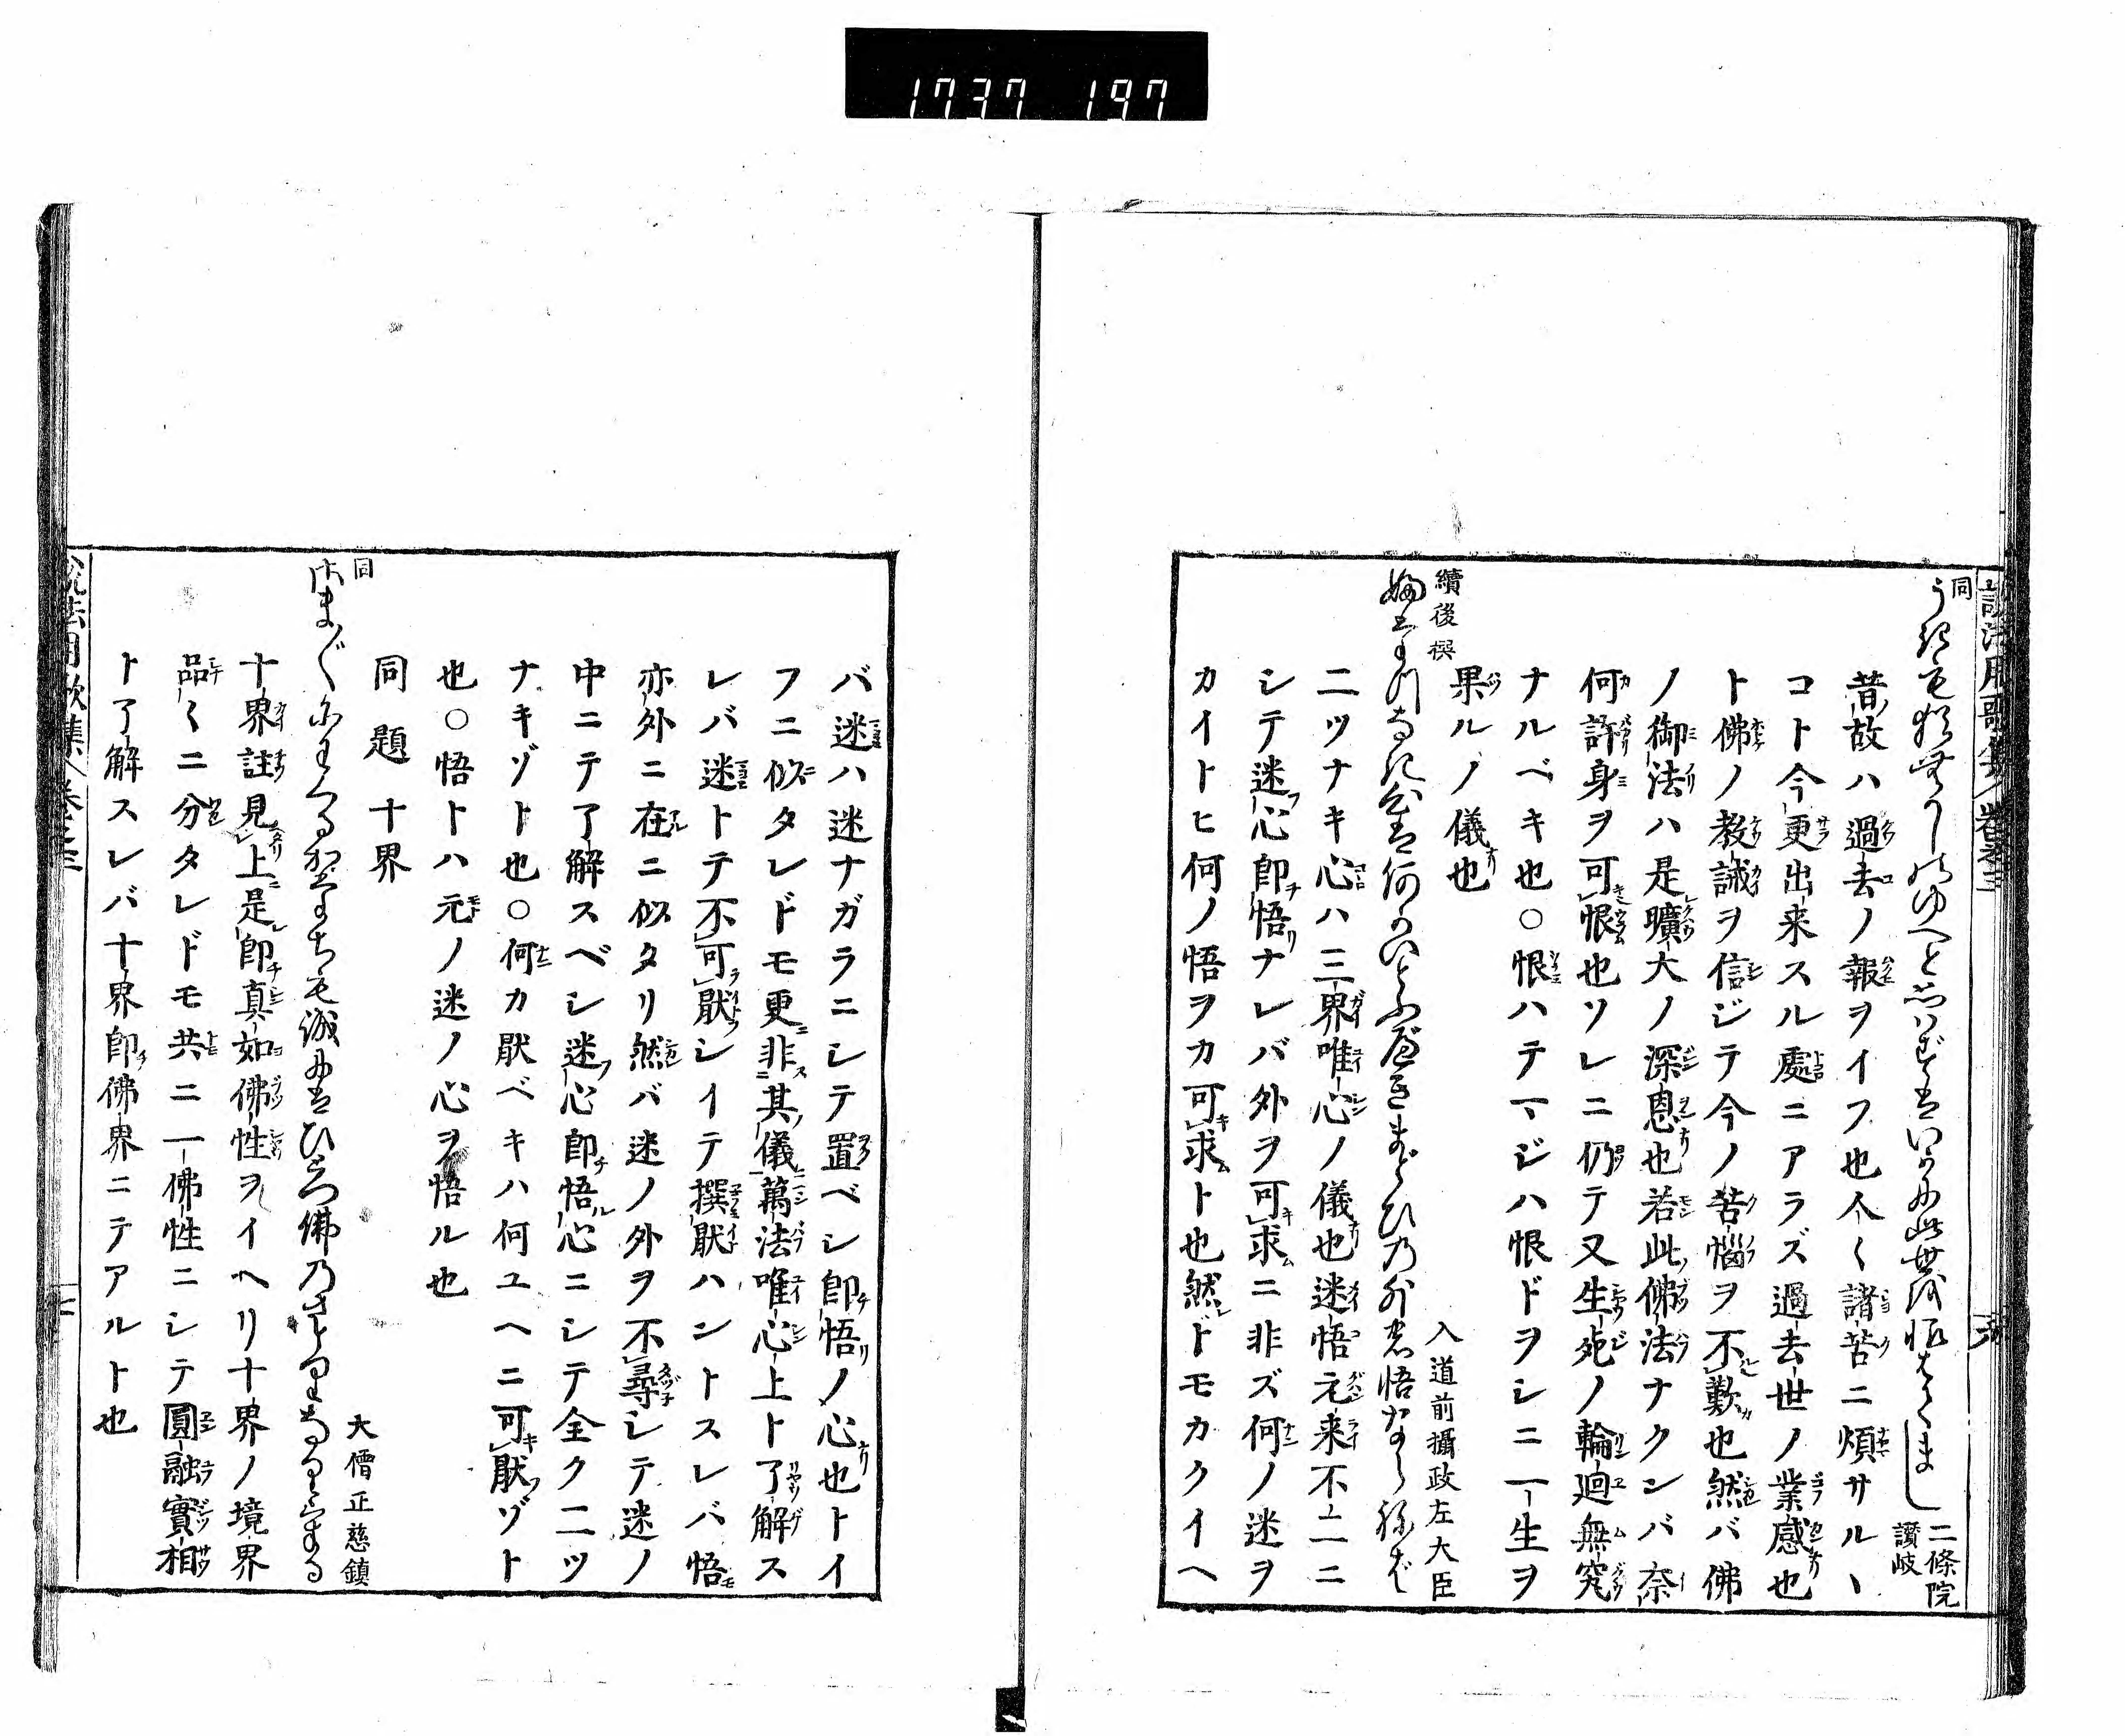 1737 197
同
うきも猶昔のゆへと思はずはいかに此世を恨はてまし
二條院
讃岐
昔ノ故ハ過去ノ報ヲイフ也人〱諸苦ニ煩サルヽ
コト今更出来スル處ニアラズ過去世ノ業感也
ト佛ノ教誡ヲ信ジテ今ノ苦惱ヲ不歎也然バ佛
ノ御法ハ是曠大ノ深恩也若此佛法ナクンバ奈
何許身ヲ可恨也ソレニ仍テ又生死ノ輪廻無究
ナルベキ也○恨ハテマジハ恨ドヲシニ一生ヲ
果ルノ儀也
續後撰
入道前攝政左大臣
悟ならねば
二ツナキ心ハ三界唯心ノ儀也迷悟元来不二ニ
シテ迷心即悟ナレバ外ヲ可求ニ非ズ何ノ迷ヲ
カイトヒ何ノ悟ヲカ可求ト也然ドモカクイヘ
バ迷ハ迷ナガラニシテ置ベシ即悟ノ心也トイ
フニ似タレドモ更非其儀萬法唯心上ト了解ス
レバ迷トテ不可厭シイテ撰厭ハントスレバ悟
亦外ニ在ニ似タリ然バ迷ノ外ヲ不尋シテ迷ノ
中ニテ了解スベシ迷心即悟心ニシテ全ク二ツ
ナキゾト也○何カ厭ベキハ何ユヘニ可厭ゾト
也○悟トハ元ノ迷ノ心ヲ悟ル也
同題十界
同
大僧正慈鎮
さま〲にわかるかたちも誠にはひとつ佛のさとりなりけり
十界註見上是即真如佛性ヲイヘリ十界ノ境界
品〱ニ分タレドモ共ニ一佛性ニシテ圓融實相
ト了解スレバ十界即佛界ニテアルト也